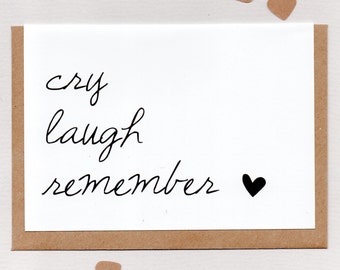 cry
laugh
remember ♥